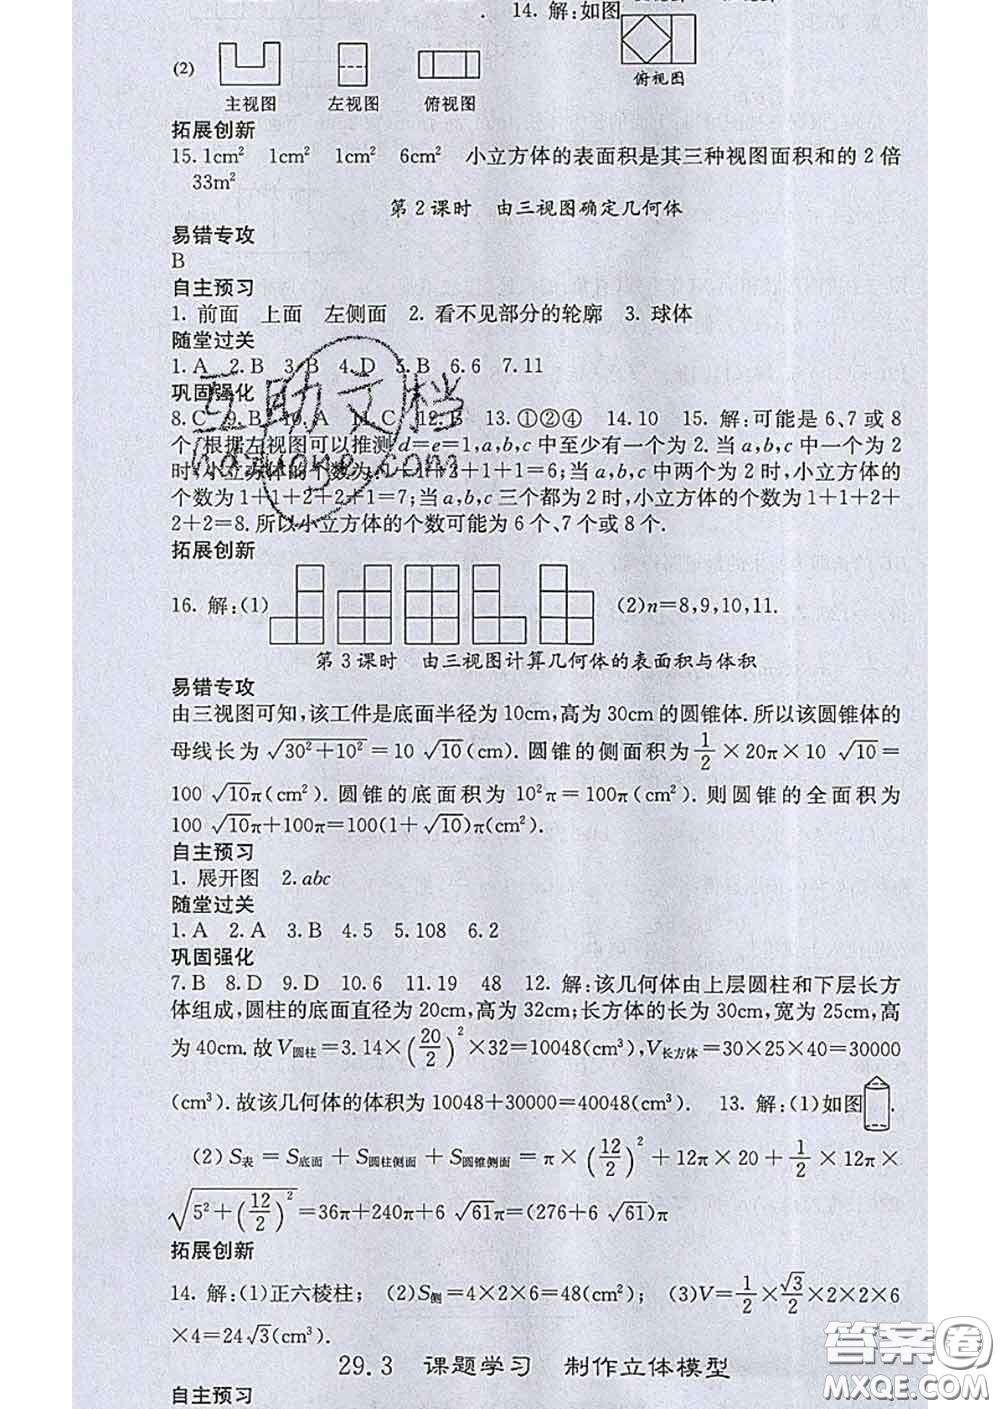 14. 解:如图
俯视图
(2)
主视图 左视图 俯视图
拓展创新
15. 1cm² 1cm² 1cm² 6cm² 小立方体的表面积是其三种视图面积和的2倍
33m²
第2课时 由三视图确定几何体
易错专攻
B
自主预习
1. 前面 上面 左侧面 2. 看不见部分的轮廓 3. 球体
随堂过关
1. A 2. B 3. B 4. D 5. B 6.6 7.11
巩固强化
8. C 9. B 10. A 11. C 12. B 13. ①②④ 14. 10 15. 解:可能是6、7或8
个.根据左视图可以推测d=e=1,a,b,c中至少有一个为2.当a,b,c中一个为2
时,小立方体的个数为:1+1+2+1+1=6;当a,b,c中两个为2时,小立方体的
个数为1+1+2+2+1=7;当a,b,c三个都为2时,小立方体的个数为1+1+2+
2+2=8.所以小立方体的个数可能为6个、7个或8个.
拓展创新
16. 解:(1) (2)n=8,9,10,11.
第3课时 由三视图计算几何体的表面积与体积
易错专攻
由三视图可知,该工件是底面半径为10cm,高为30cm的圆锥体.所以该圆锥体的
母线长为√(30²+10²)=10√10(cm).圆锥的侧面积为1/2×20π×10√10=
100√10π(cm²).圆锥的底面积为10²π=100π(cm²).则圆锥的全面积为
100√10π+100π=100(1+√10)π(cm²).
自主预习
1. 展开图 2. abc
随堂过关
1. A 2. A 3. B 4.5 5.108 6.2
巩固强化
7. B 8. D 9. D 10.6 11.19 48 12. 解:该几何体由上层圆柱和下层长方
体组成,圆柱的底面直径为20cm,高为32cm;长方体的长为30cm,宽为25cm,高
为40cm.故V圆柱=3.14×(20/2)²×32=10048(cm³),V长方体=30×25×40=30000
(cm³).故该几何体的体积为10048+30000=40048(cm³). 13. 解:(1)如图.
(2)S表=S底面+S圆柱侧面+S圆锥侧面=π×(12/2)²+12π×20+1/2×12π×
√(5²+(12/2)²)=36π+240π+6√61π=(276+6√61)π
拓展创新
14. 解:(1)正六棱柱; (2)S侧=4×2×6=48(cm²); (3)V=1/2×√3/2×2×2×6
×4=24√3(cm³).
29.3 课题学习 制作立体模型
自主预习
互助文档
huzhuge.com
答案圈
MXQE.COM